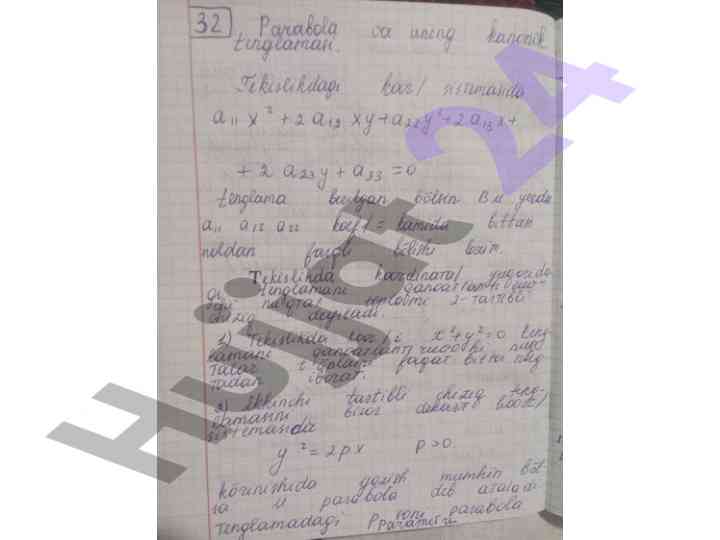 32 Parabola va uning kanonik
tenglamasi.
Tekislikdagi koor/ sistemasida
a₁₁ x² + 2 a₁₂ xy + a₂₂ y² + 2 a₁₃ x +
+ 2 a₂₃ y + a₃₃ = 0
tenglama berilgan bölsin Bu yerda
a₁₁ a₁₂ a₂₂ koef/ = kamida bittasi
noldan farqli bölishi lozim.
Tekislikda koordinata/ yuqorida
gi tenglamani qanoatlanti
nuqtal töplami 2-tartibli
chiziq deyiladi.
1) Tekislikda koor/i x²+y²=0 teng
lamani qanoatlantiruvchi nuq
talar töplami faqat bitta nuq
tadan iborat.
2) Ikkinchi tartibli chiziq teng-
lamasini biror dekart koor/
sistemasida
y² = 2px p>0
körinishida yozish mumkin böl-
sa u parabola deb ataladi
Tenglamadagi p soni parabola
parametri
Hujjat 24